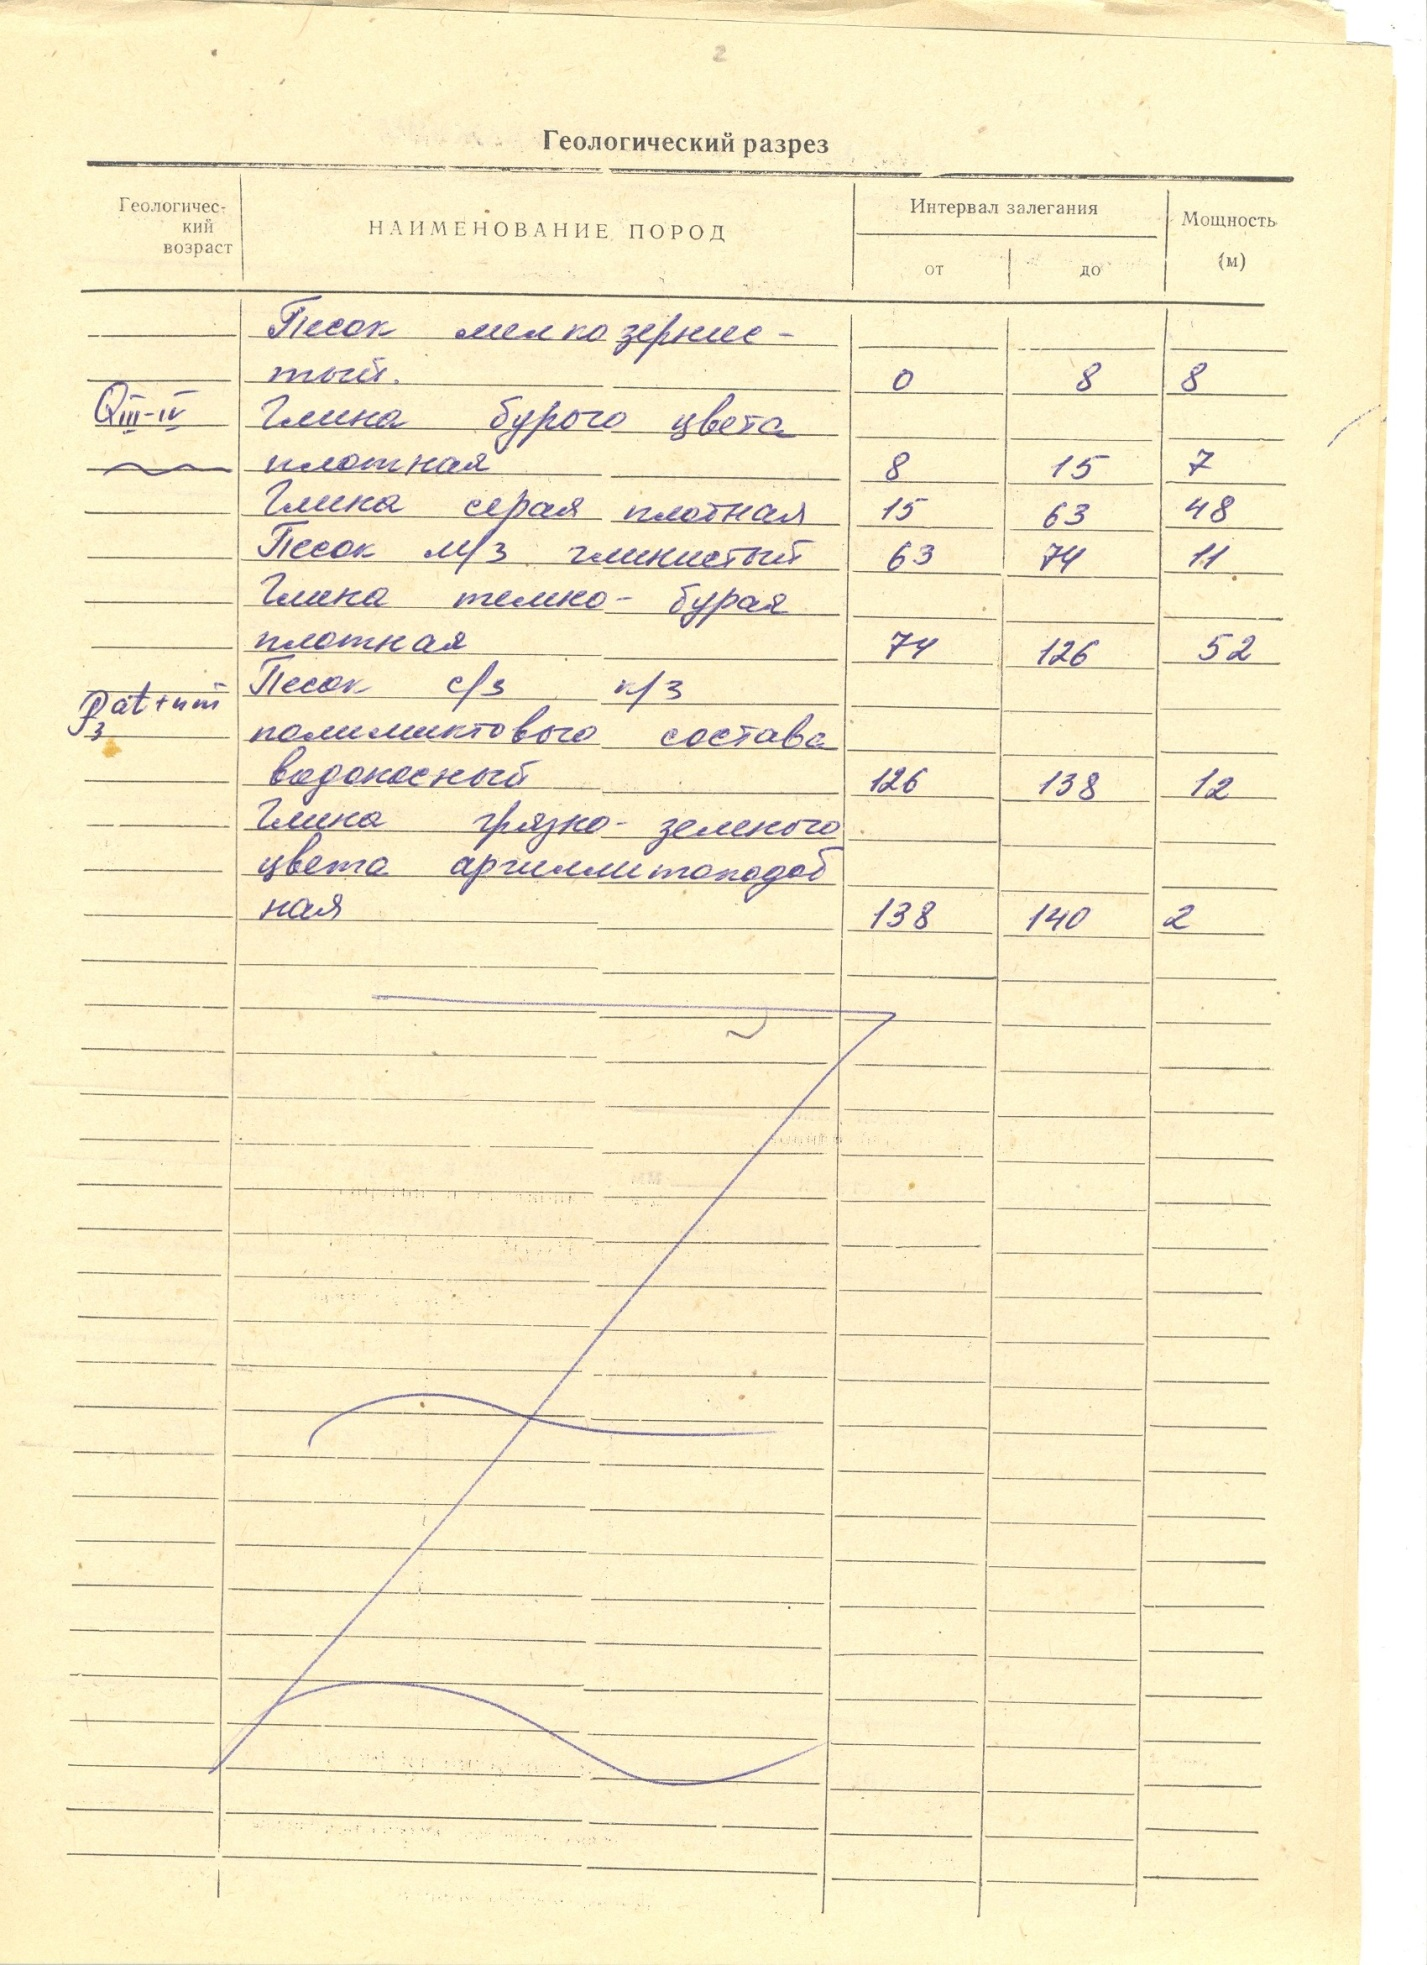 2
Геологический разрез
Геологичес-
кий
возраст
НАИМЕНОВАНИЕ ПОРОД
Интервал залегания
от до
Мощность
(м)
Песок мелкозернис-
тый. 0 8 8
QIII-IV Глина бурого цвета
плотная 8 15 7
Глина серая плотная 15 63 48
Песок м/з глинистый 63 74 11
Глина темно-бурая
плотная 74 126 52
Песок с/з к/з
P3 at+nm полимиктового состава
водоносный 126 138 12
Глина грязно-зеленого
цвета аргиллитоподоб
ная 138 140 2